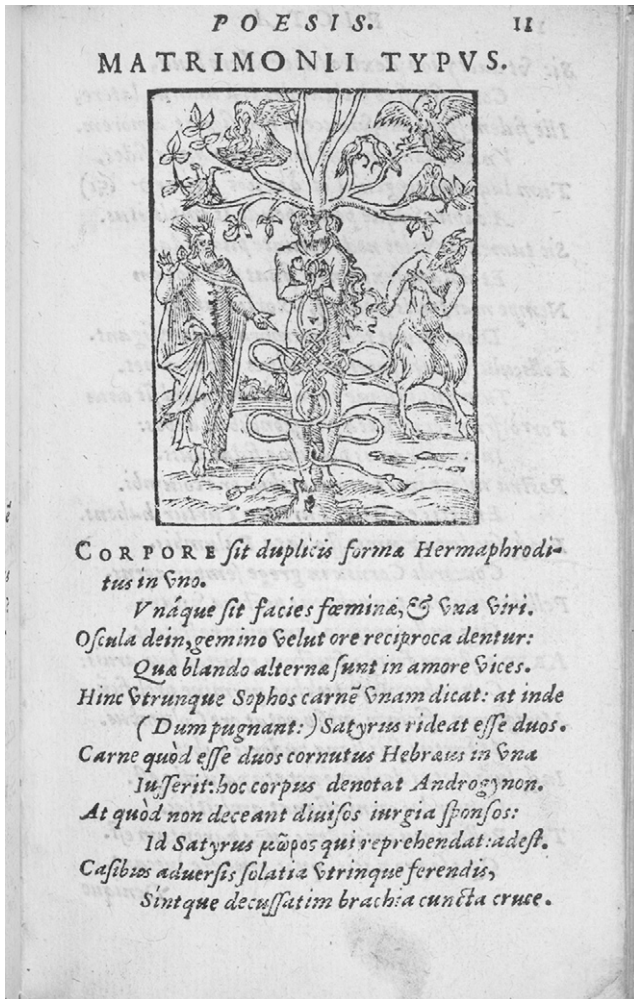 POESIS. 11
MATRIMONII TYPVS.
CORPORE sit duplicis formæ Hermaphrodi-
tus in vno.
Vnáque sit facies fœminæ, & vna viri.
Oscula dein, gemino velut ore reciproca dentur:
Quæ blando alternæ sunt in amore vices.
Hinc vtrunque Sophos carnẽ vnam dicat: at inde
(Dum pugnant:) Satyrus rideat esse duos.
Carne quòd esse duos cornutus Hebræus in vna
Iusserit: hoc corpus denotat Androgynon.
At quòd non deceant diuisos iurgia sponsos:
Id Satyrus μῶρος qui reprehendat: adest.
Casibus aduersis solatia vtrinque ferendis,
Sintque decussatim brachia cuncta cruce.